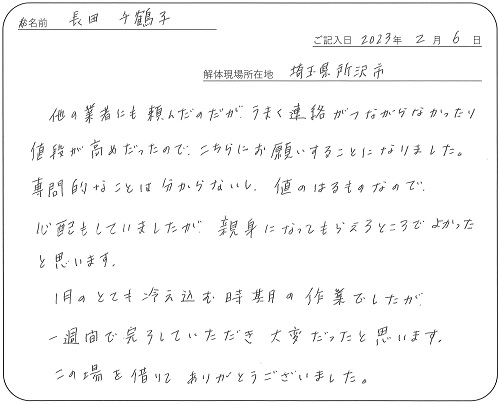 お名前 長田 千鶴子
ご記入日 2023年 2月 6日
解体現場所在地 埼玉県所沢市
他の業者にも頼んだのだが、うまく連絡がつながらなかったり
値段が高めだったので、こちらにお願いすることになりました。
専門的なことは分からないし、値のはるものなので、
心配もしていましたが、親身になってもらえるところでよかった
と思います。
1月のとても冷え込む時期の作業でしたが
一週間で完了していただき 大変だったと思います。
この場を借りて ありがとうございました。